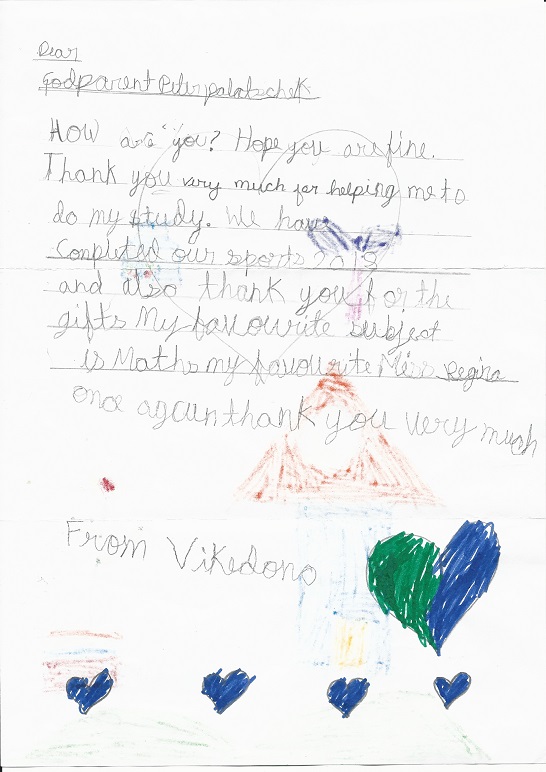 Dear
Godparent Peter palatschek
How are you? Hope you are fine.
Thank you very much for helping me to
do my study. We have
completed our sports 2013
and also thank you for the
gifts My favourite subject
is Maths my favourite Miss Regina
once again thank you very much
From Vikedono